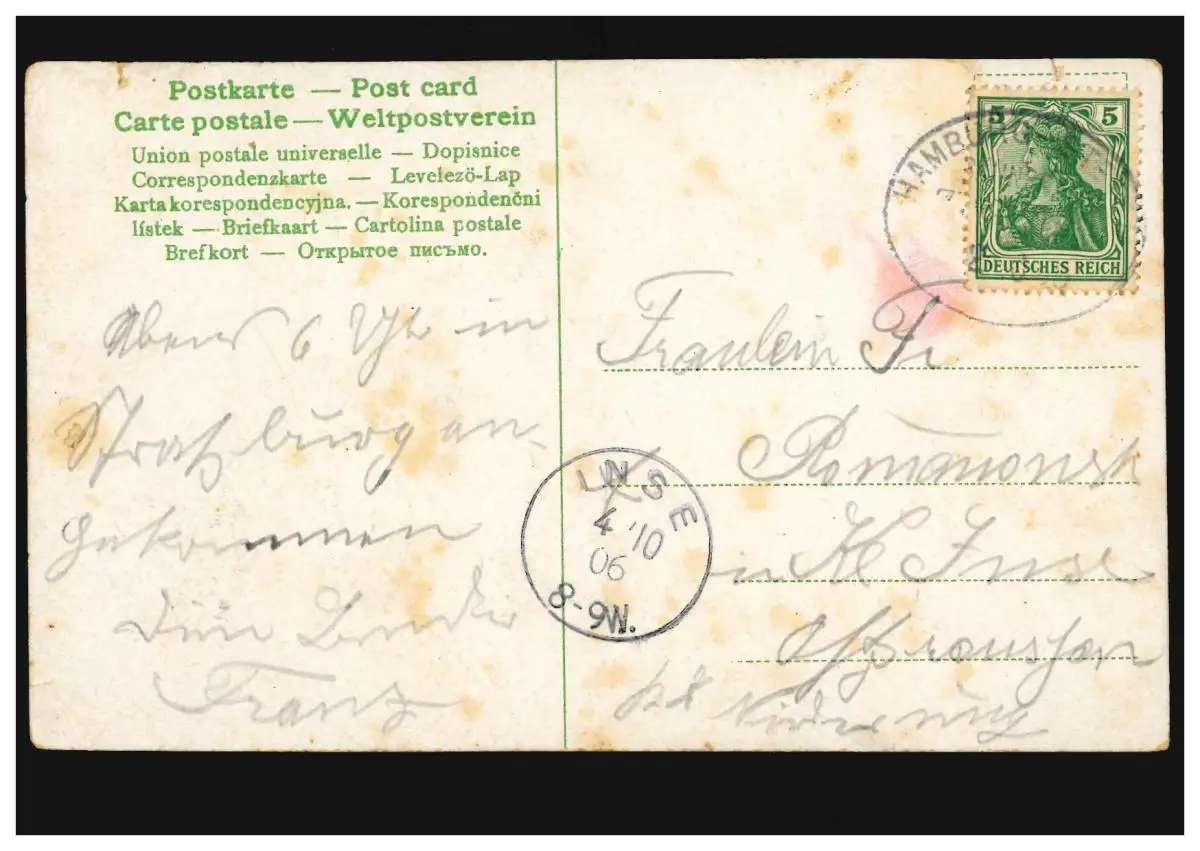 Postkarte — Post card
Carte postale — Weltpostverein
Union postale universelle — Dopisnice
Correspondenzkarte — Levelező-Lap
Karta korespondencyjna. — Korespondenční
lístek — Briefkaart — Cartolina postale
Brefkort — Открытое письмо.
5 5
DEUTSCHES REICH
HAMBU
Abend 6 Uhr in
Straßburg an-
gekommen
dein Bruder
Franz
Fräulein Fr
Romanowsk
in Kl Inse
Ostpreussen
Niederung
INSE
4 10
06
8-9N.